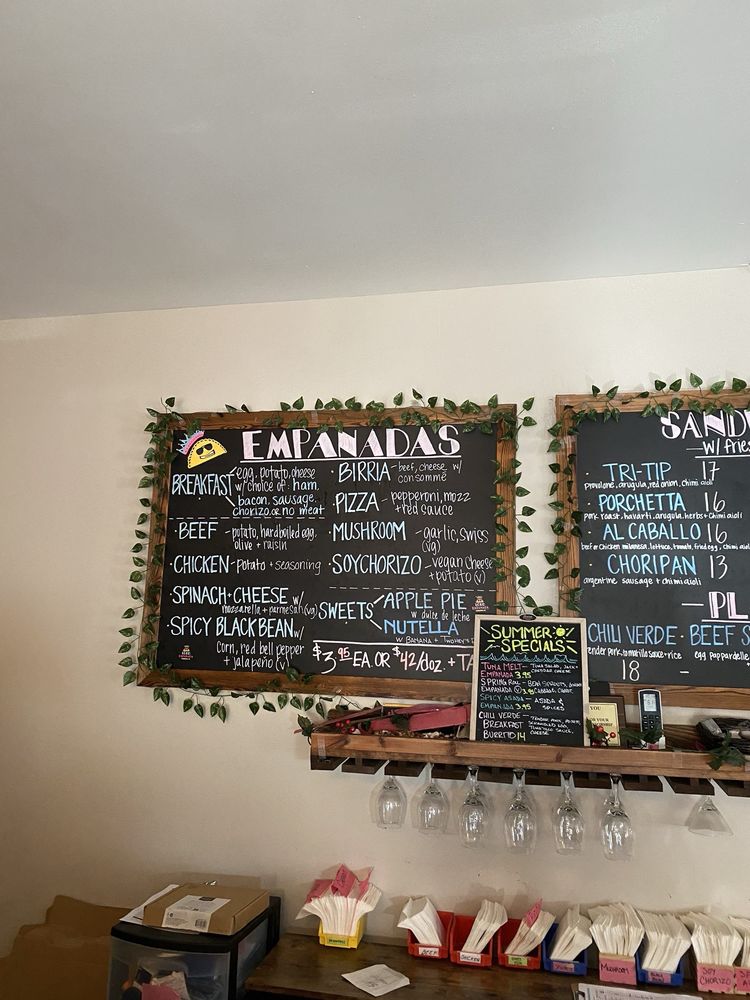 EMPANADAS
BREAKFAST egg, potato, cheese
w/choice of: ham,
bacon, sausage,
chorizo, or no meat
· BEEF - potato, hardboiled egg,
olive + raisin
· CHICKEN - potato + seasoning
· SPINACH + CHEESE w/
mozzarella + parmesan (vg)
· SPICY BLACK BEAN w/
corn, red bell pepper
+ jalapeño (v)
· BIRRIA - beef, cheese, w/
consommé
· PIZZA - pepperoni, mozz
+ red sauce
· MUSHROOM - garlic, swiss
(vg)
· SOYCHORIZO - vegan cheese
+ potato (v)
SWEETS
APPLE PIE
w/ dulce de leche
NUTELLA
w/ BANANA +
$3.95 EA. OR $42/doz + TA
SUMMER
SPECIALS
TUNA MELT - TUNA SALAD, JACK +
CHEDDAR CHEESE
EMPANADA 3.95
SPRING ROLL - BEAN SPROUTS,
EMPANADA 3.95 CABBAGE, CARROT
SPICY ASADA - ASADA &
EMPANADA 3.95 SPICES
CHILI VERDE -
BREAKFAST
BURRITO 14
CHEESE
SAND
w/ fries
· TRI-TIP 17
provolone, arugula, red onion, chimi aioli
· PORCHETTA 16
pork roast, havarti, arugula, herbs + chimi aioli
· AL CABALLO 16
beef or chicken milanesa, lettuce, tomato, fried egg, chimi ai
· CHORIPAN 13
argentine sausage + chimi aioli
PL
CHILI VERDE · BEEF S
tender pork, tomatillo sauce + rice
egg pappardelle
18 -
YOU
BEEF
CHICKEN
MUSHROOM
SOY
CHORIZO